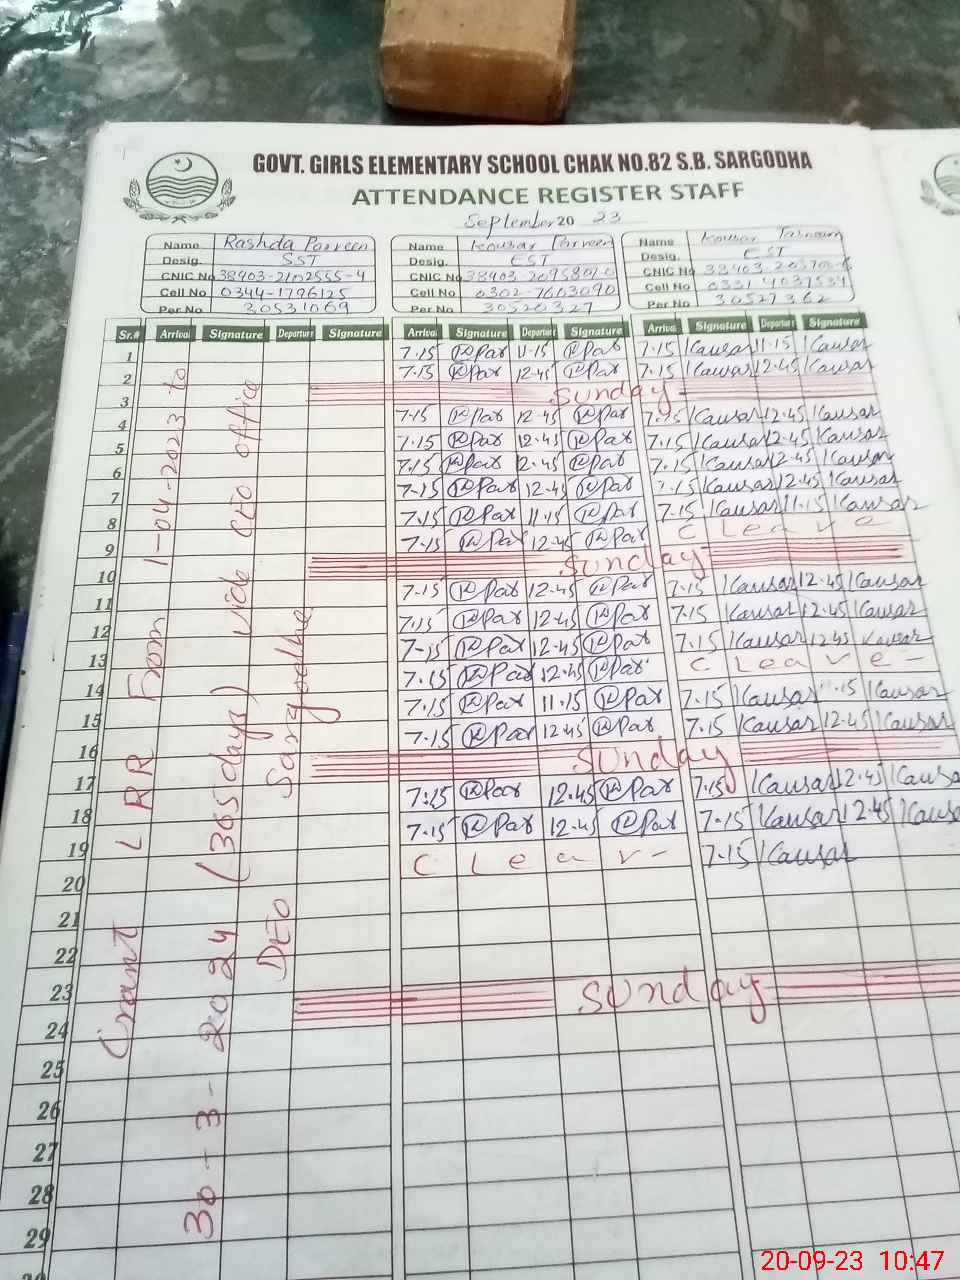 GOVT. GIRLS ELEMENTARY SCHOOL CHAK NO.82 S.B. SARGODHA
ATTENDANCE REGISTER STAFF
September 20 23
Name Rashda Parveen
Desig. SST
CNIC No 38403-2102555-4
Cell No 0344-1796125
Per No 30531069
Name Kousar Parveen
Desig. EST
CNIC No
Cell No 0302-7603090
Per No 30520327
Name Kousar Tasneem
Desig. EST
CNIC No
Cell No
Per No 30527362
Sr.# Arrival Signature Departure Signature Arrival Signature Departure Signature Arrival Signature Departure Signature
1 7.15 11.15 7.15 Kausar 11.15 Kausar
2 7.15 12.45 7.15 Kausar 12.45 Kausar
3 Sunday
4 7.15 12.45 7.15 Kausar 12.45 Kausar
5 7.15 12.45 7.15 Kausar 12.45 Kausar
6 7.15 12.45 7.15 Kausar 12.45 Kausar
7 7.15 12.45 7.15 Kausar 12.45 Kausar
8 7.15 11.15 7.15 Kausar 11.15 Kausar
9 7.15 12.45 C Leave
10 Sunday
11 7.15 12.45 7.15 Kausar 12.45 Kausar
12 7.15 12.45 7.15 Kausar 12.45 Kausar
13 7.15 12.45 7.15 Kausar 12.45 Kausar
14 7.15 12.45 C Leave
15 7.15 11.15 7.15 Kausar 11.15 Kausar
16 7.15 12.45 7.15 Kausar 12.45 Kausar
17 Sunday
18 7:15 12.45 7.15 Kausar 12.45 Kausar
19 7.15 12.45 7.15 Kausar 12.45 Kausar
20 C Leav 7.15 Kausar
21
22
23
24 Sunday
25
26
27
28
29
Grant LRR From 1-04-2023 to
30-3-2024 (365 days) vide CEO office
DEO Sargodha
20-09-23 10:47